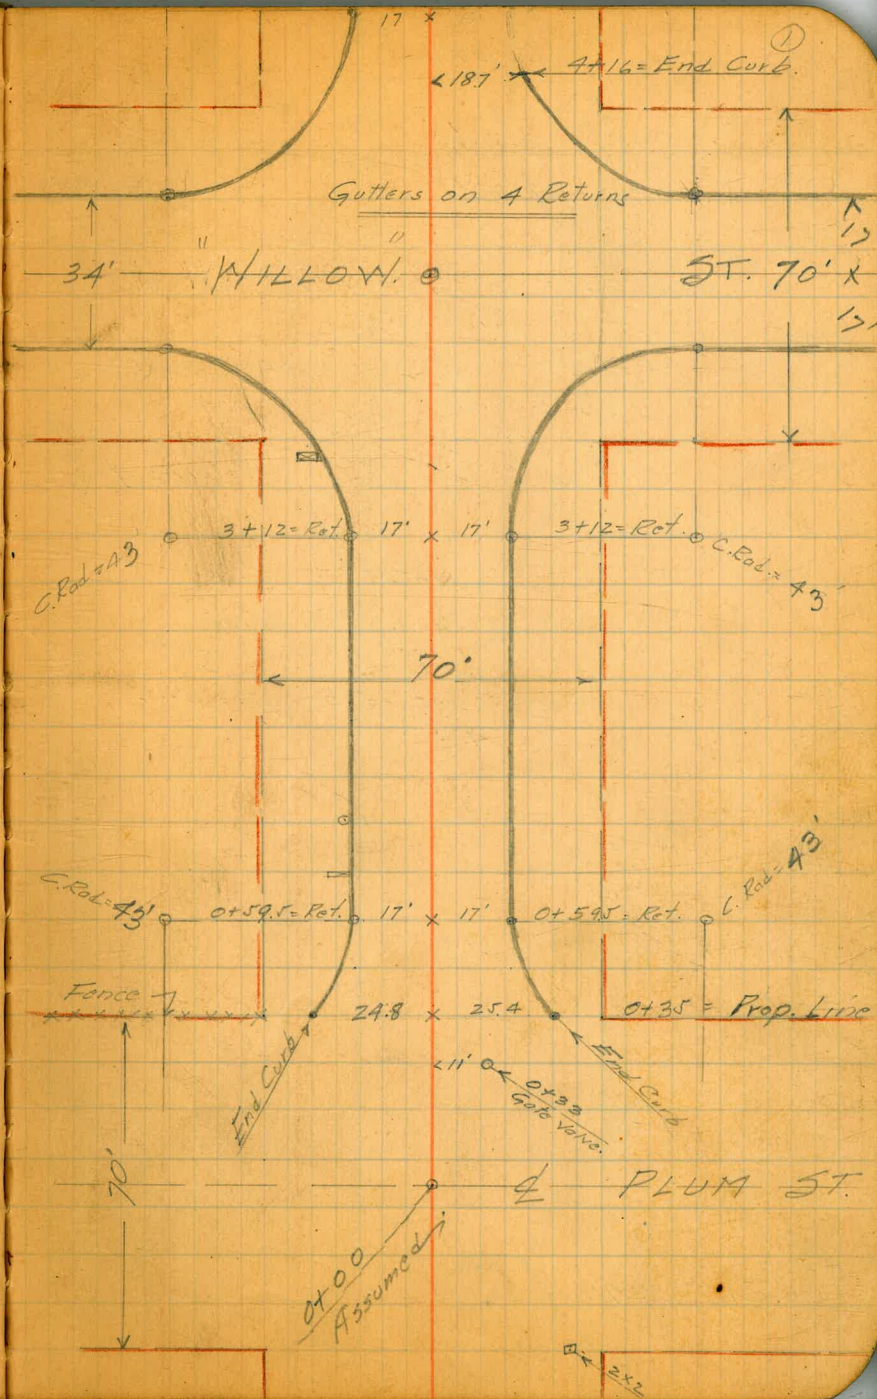 1
17 x
<18.7'
4+16= End Curb.
Gutters on 4 Returns
34'
"WILLOW."
ST. 70' x
17
17
3+12= Ret.
17'
x
17'
3+12= Ret.
C.Rad = 43
C.Rad.= 43'
70'
C.Rad= 43'
0+59.5= Ret.
17'
x
17'
0+59.5= Ret.
C. Rad= 43'
Fence
24.8
x
25.4
0+35 = Prop. Line
End Curb
<11'
0+33
Gate Valve.
End Curb
70'
℄ PLUM ST.
0+00
Assumed
2x2